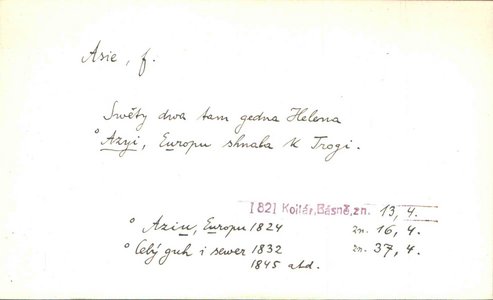 Asie, f.
Swěty dwa tam gedna Helena
° Azyi, Europu shnala k Trogi.
1821 Kollár, Básně, zn. 13, 4.
° Aziu, Europu 1824 zn. 16, 4.
° Celý guh i sewer 1832 zn. 37, 4.
1845 atd.